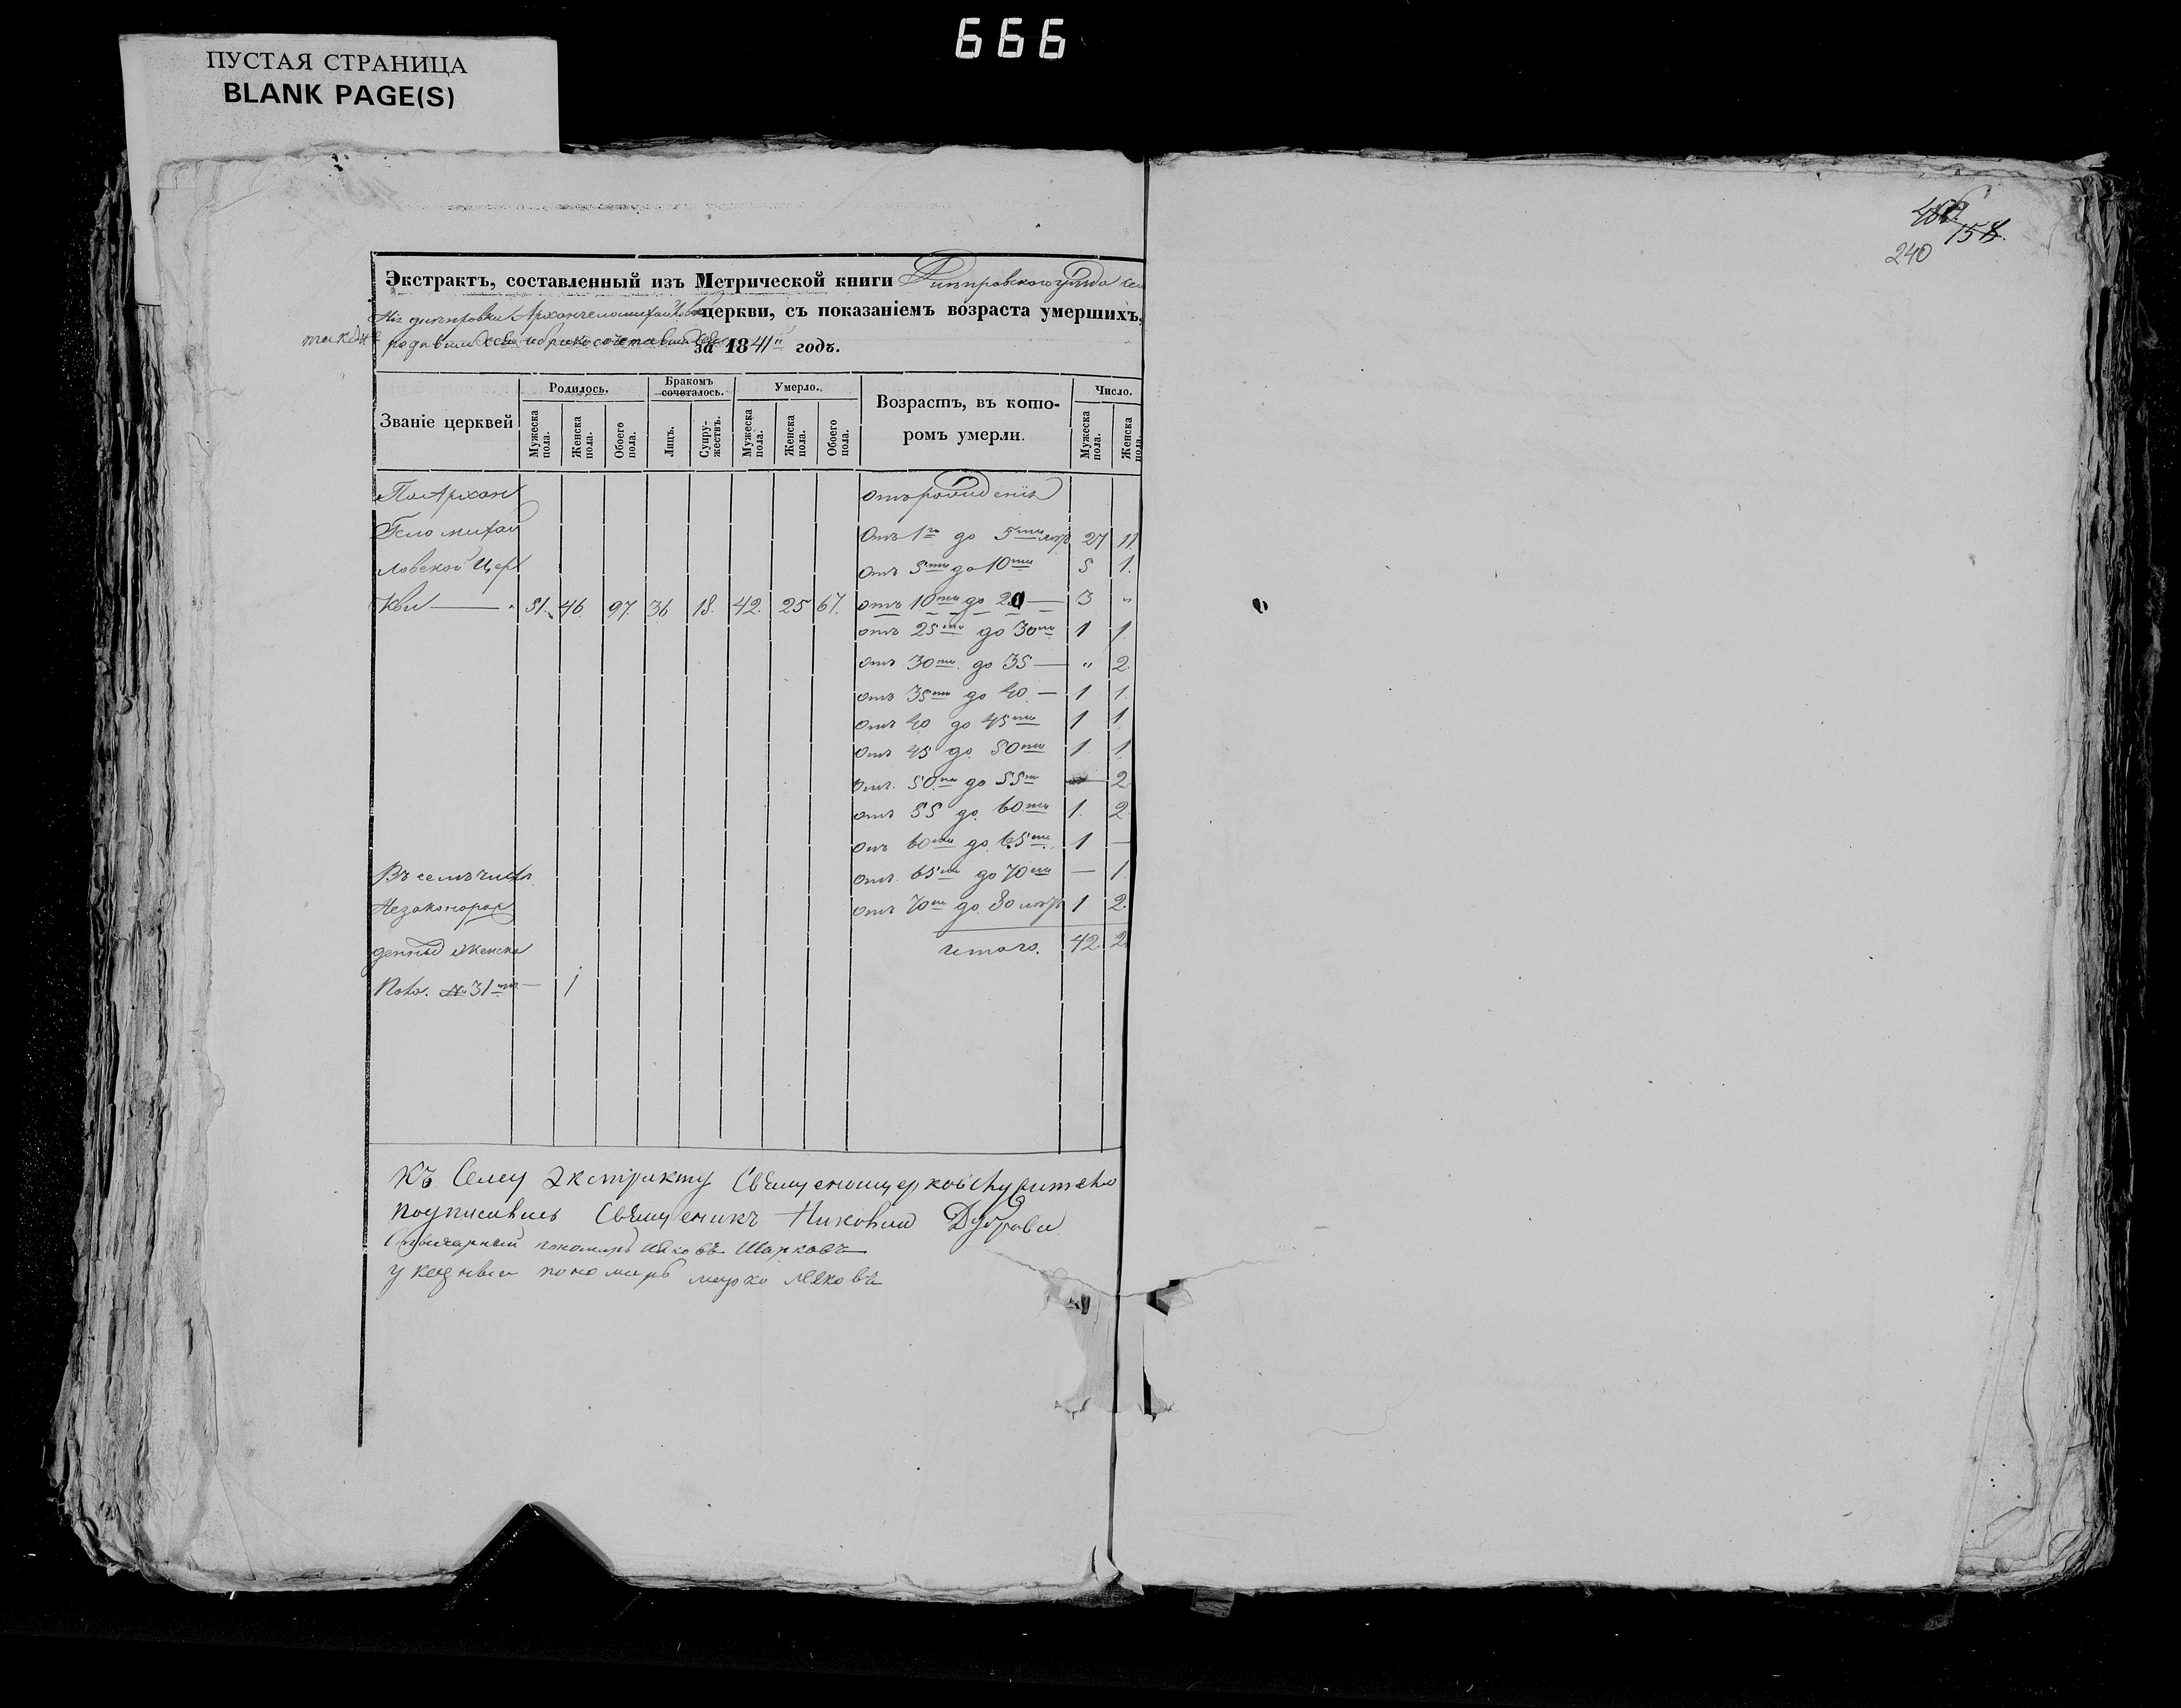 666
ПУСТАЯ СТРАНИЦА
BLANK PAGE(S)
Экстрактъ, составленный изъ Метрической книги Днѣпровскаго уѣзда
днепровки Архангеломихайловской церкви, съ показаніемъ возраста умершихъ,
также родившихся и бракосочетавшихся за 1841 годъ.
Званіе церквей
Родилось.
Бракомъ сочеталось.
Умерло.
Возрастъ, въ которомъ умерли.
Число.
Мужеска пола.
Женска пола.
Обоего пола.
Лицъ.
Супружествъ.
Мужеска пола.
Женска пола.
Обоего пола.
Мужеска пола.
Женска пола.
По Архан отъ рожденія
гело михай Отъ 1го до 5ти лѣтъ 27 11.
ловской Цер отъ 5ти до 10ти 5 1.
кви — 51. 46. 97. 36 18. 42. 25 67. отъ 10ти до 20 — 3 "
отъ 25ти до 30ти 1 1.
отъ 30ти до 35 — " 2.
отъ 35ти до 40 — 1 1.
отъ 40 до 45ти 1 1.
отъ 45 до 50ти 1 1
от. 50ти до 55ти — 2
отъ 55 до 60ти 1. 2
отъ 60ти до 65ти 1 —
Въ семъ числѣ от. 65ти до 70ти — 1.
Незакорож отъ 70ти до 80 лѣтъ 1 2.
денныхъ женска итого. 42. 2
пола. № 31 — 1
Къ Сему экстракту
подписались Священикъ Никофий Дубрава
пономарь Яковъ Шарковъ
указный пономарь марко Ляковъ
158.
240